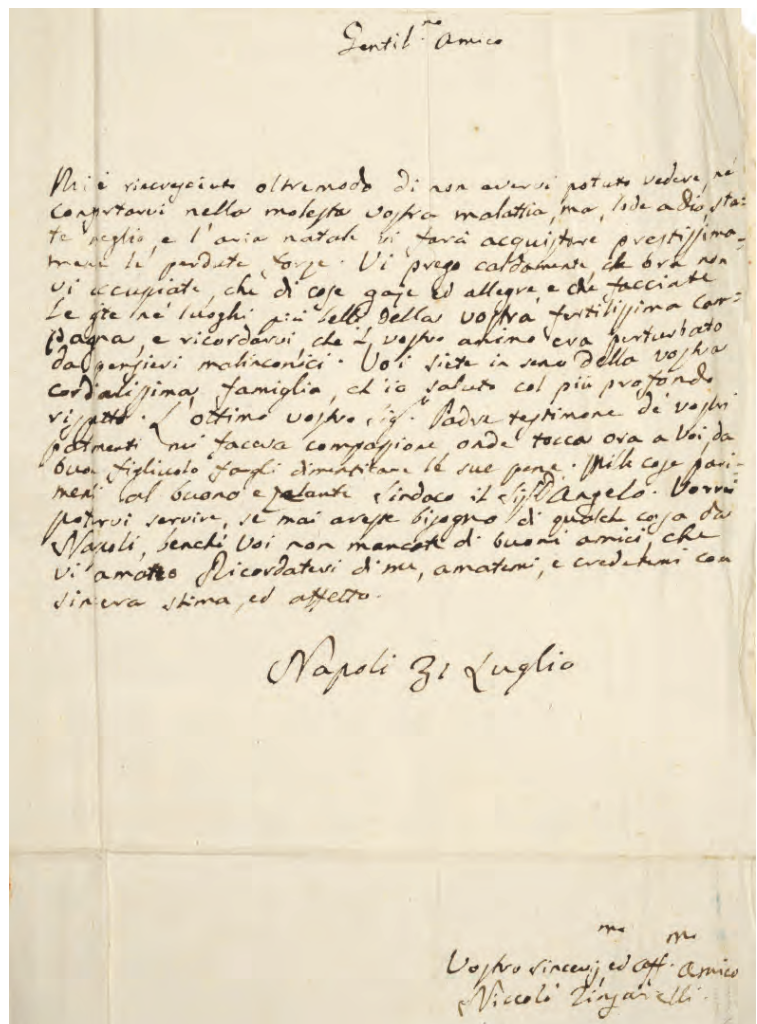 Gentil.mo Amico
Mi è rincresciuto oltremodo di non avervi potuto vedere, nè
confortarvi nella molesta vostra malattia, ma, lode a dio, sta=
te meglio, e l'aria natale vi farà acquistare prestissima=
mente le perdute forze. Vi prego caldamente, che ora non
vi occupiate, che di cose gaje ed allegre, e che facciate
le gite ne' luoghi più belli della vostra fertilissima cam=
pagna, e ricordarvi che il vostro animo era perturbato
da pensieri malinconici. Voi siete in seno della vostra
cordialissima famiglia, ch'io saluto col più profondo
rispetto. L'ottimo vostro Sig.r Padre testimone de' vostri
patimenti mi faceva compassione onde tocca ora a Voi, da
buon figliuolo fargli dimenticare le sue pene. Mille cose pari=
menti al buono e zelante Sindaco il Sig.r D'Angelo. Vorrei
potervi servire, se mai aveste bisogno di qualche cosa da
Napoli, benchè Voi non mancate di buoni amici, che
vi amano Ricordatevi di me, amatemi, e credetemi con
sincera stima, ed affetto.
Napoli 31 Luglio
Vostro sinceris.mo ed aff.mo Amico
Niccolò Zingarelli.